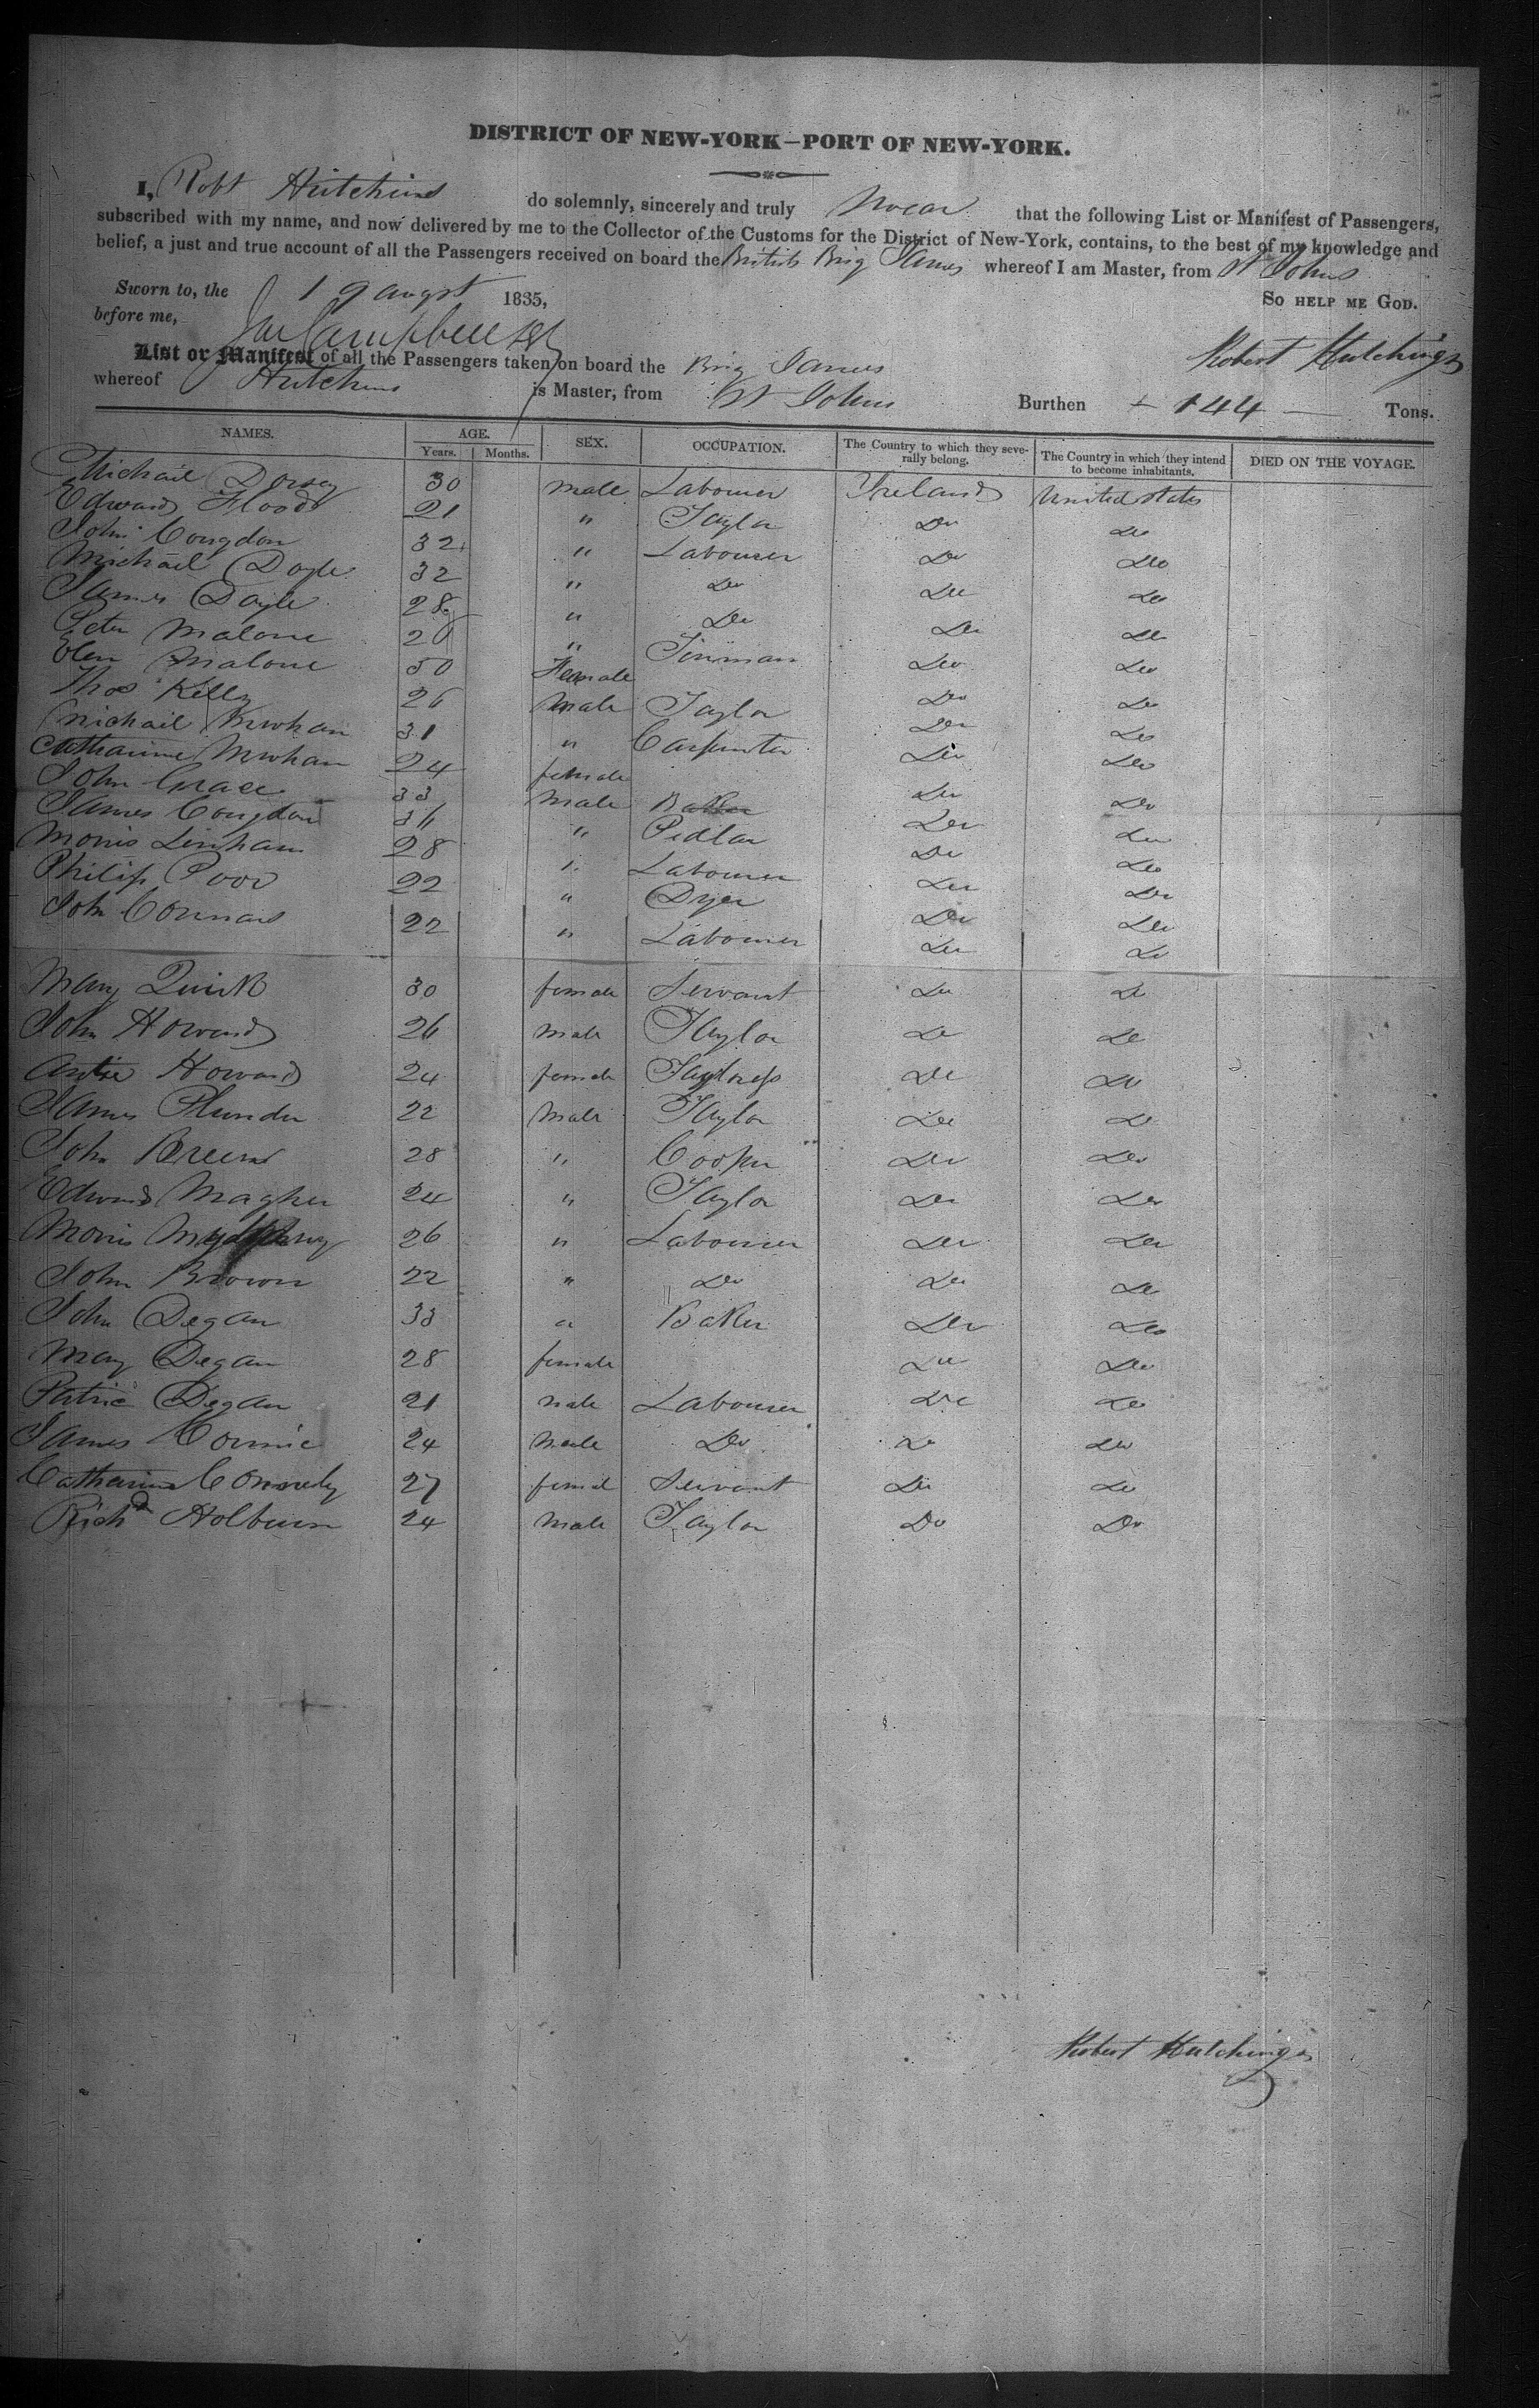 DISTRICT OF NEW-YORK—PORT OF NEW-YORK.
I, Robt Hutchins do solemnly, sincerely and truly swear that the following List or Manifest of Passengers,
subscribed with my name, and now delivered by me to the Collector of the Customs for the District of New-York, contains, to the best of my knowledge and
belief, a just and true account of all the Passengers received on board the British Brig James whereof I am Master, from St Johns
Sworn to, the 19 augst 1835, So help me God.
before me, Campbell Robert Hutchings
List or Manifest of all the Passengers taken on board the Brig James
whereof Hutchins is Master, from St Johns Burthen 144 Tons.
NAMES. AGE. SEX. OCCUPATION. The Country to which they severally belong. The Country in which they intend to become inhabitants. DIED ON THE VOYAGE.
Years. Months.
Michail Dorsey 30 male Labourer Ireland United States
Edward Flood 21 " Taylor Do Do
John Congdon 32 " Labourer Do Do
Michail Doyle 32 " Do Do Do
James Doyle 28 " Do Do Do
Peter Malone " Tinman Do Do
Elen Malone 50 Female Do Do
Thos Kelly 26 male Taylor Do Do
Michail 31 " Carpenter Do Do
Catharine 24 female Do Do
John Grace 33 male Baker Do Do
James Congdon 36 " Pedlar Do Do
Morris Linham 28 " Labourer Do Do
Philip Poor 22 " Dyer Do Do
John Connars 22 " Labourer Do Do
Mary Quirk 30 female Servant Do Do
John Howard 26 male Taylor Do Do
Howard 24 female Taylress Do Do
James Plunder 22 male Taylor Do Do
John Breen 28 " Cooper Do Do
Edward Magher 24 " Taylor Do Do
Morris 26 " Labourer Do Do
John Brown 22 " Do Do Do
John Degan 33 " Baker Do Do
Mary Degan 28 female Do Do
Patric Degan 21 male Labourer Do Do
James 24 male Do Do Do
Catharine 27 femal Servant Do Do
Richd Holburn 24 male Taylor Do Do
Robert Hutchings